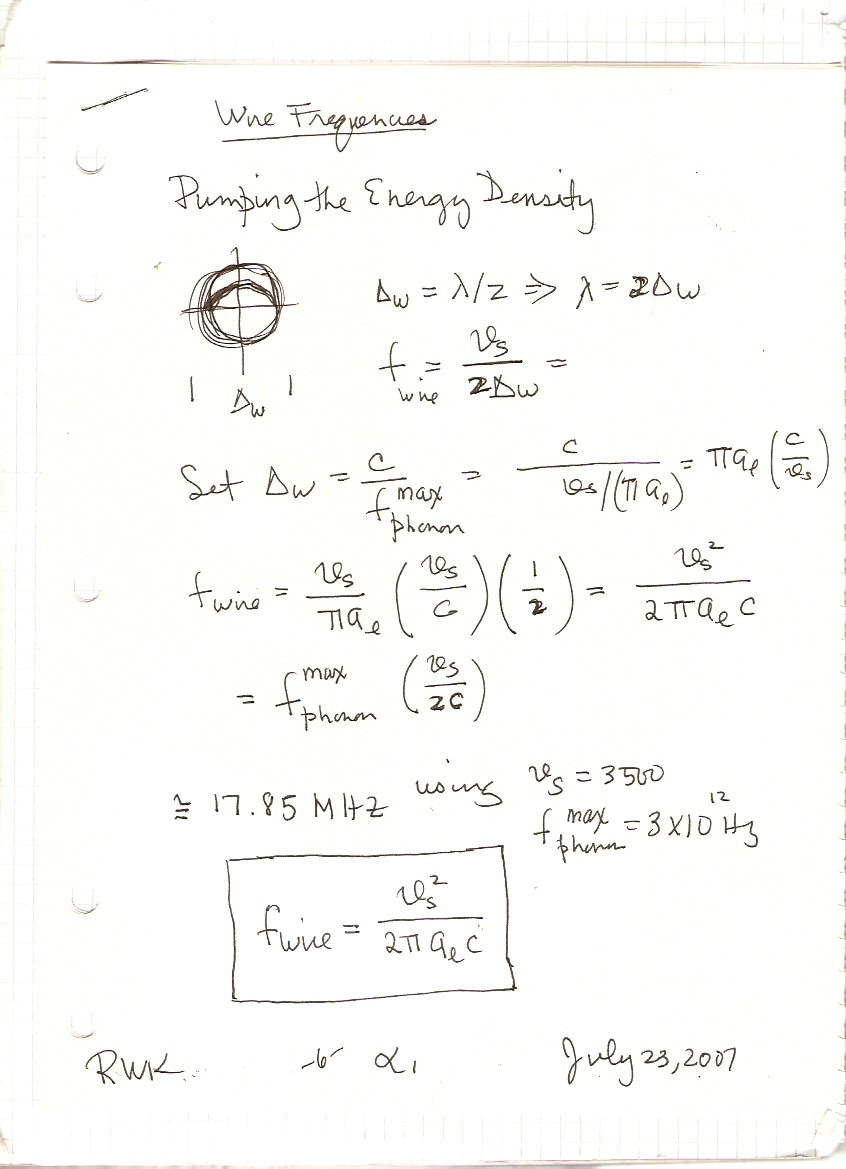 Wire Frequencies
Pumping the Energy Density
Δw = λ/2 ⇒ λ = 2Δw
f_wire = v_s / 2Δw =
| Δw |
Set Δw = c / f_phonon^max = c / (v_s/(πa_e)) = πa_e (c/v_s)
f_wire = v_s/(πa_e) (v_s/c) (1/2) = v_s² / (2πa_e c)
= f_phonon^max (v_s/2c)
≅ 17.85 MHz using v_s = 3500
f_phonon^max = 3×10^12 Hz
f_wire = v_s² / (2πa_e c)
RWK -6- α₁ July 23, 2007